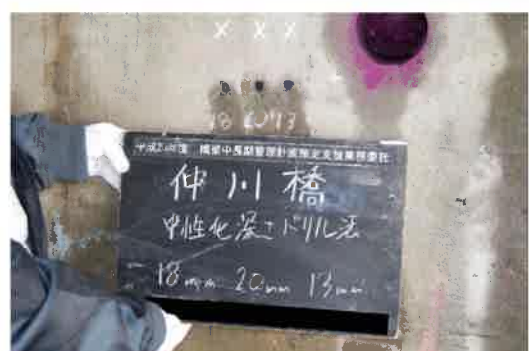 X X X
18 20 13
平成2 年度 橋梁中長期管理計画策定支援業務委託
仲川橋
中性化深さドリル法
18mm 20mm 13mm